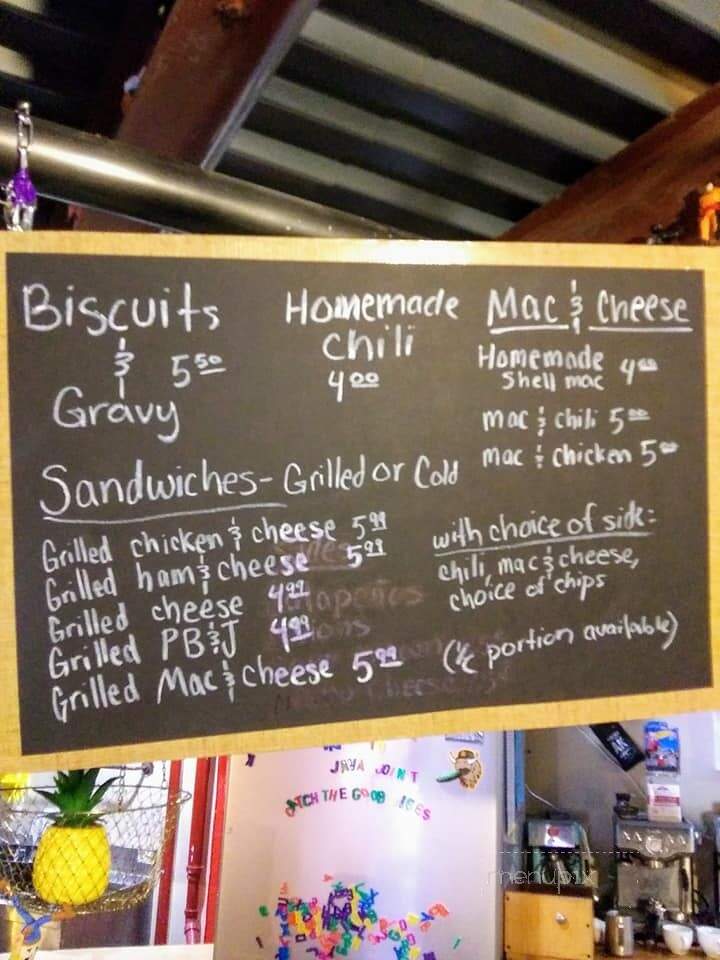 Biscuits
& 5.50
Gravy
Homemade
Chili
4.00
Mac & Cheese
Homemade
Shell mac 4.00
mac & chili 5.00
mac & chicken 5.00
Sandwiches - Grilled or Cold
Grilled chicken & cheese 5.99
Grilled ham & cheese 5.99
Grilled cheese 4.99
Grilled PB&J 4.99
Grilled Mac & cheese 5.99
with choice of side:
chili, mac & cheese,
choice of chips
(portion available)
JAVA JOINT
CATCH THE GOOD VIBES
menupix